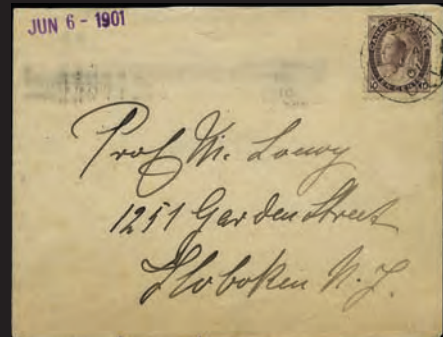 JUN 6 - 1901
Prof M. Lowy
1251 Garden Street
Hoboken N. J.